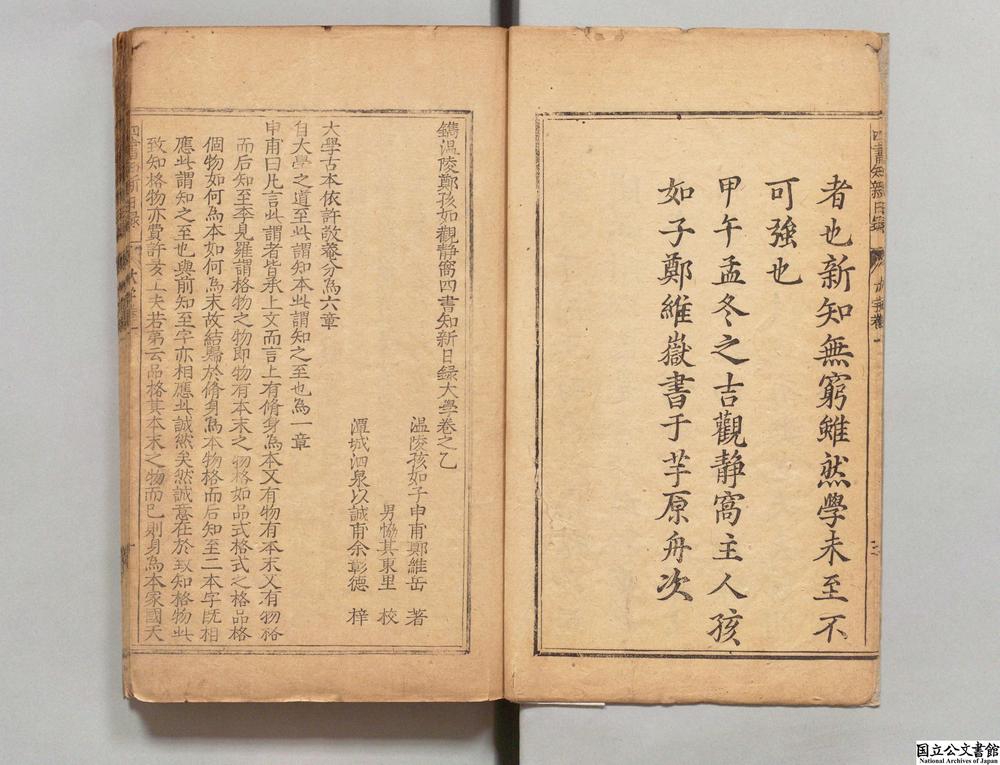 者也新知無窮雖然學未至不
可強也
甲午孟冬之吉觀靜窩主人孩
如子鄭維嶽書于芋原舟次
鐫温陵鄭孩如觀靜窩四書知新日録大學卷之乙
温陵孩如子申甫鄭維岳 著
男恊其東里 校
潭城泗泉以誠甫余彰德 梓
大學古本依許敬菴分為六章
自大學之道至此謂知本此謂知之至也為一章
申甫曰凡言此謂者皆承上文而言上有脩身為本又有物有本末又有物格
而后知至李見羅謂格物之物即物有本末之物格如品式格式之格品格
個物如何為本如何為末故結歸於脩身為本物格而后知至二本字既相
應此謂知之至也與前知至字亦相應此誠然矣然誠意在於致知格物此
致知格物亦費許多工夫若第云品格其本末之物而已則身為本家國天
国立公文書館
National Archives of Japan